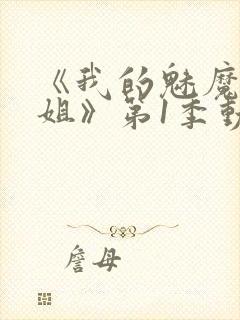 《我的魅魔
姐》第1季動
詹母